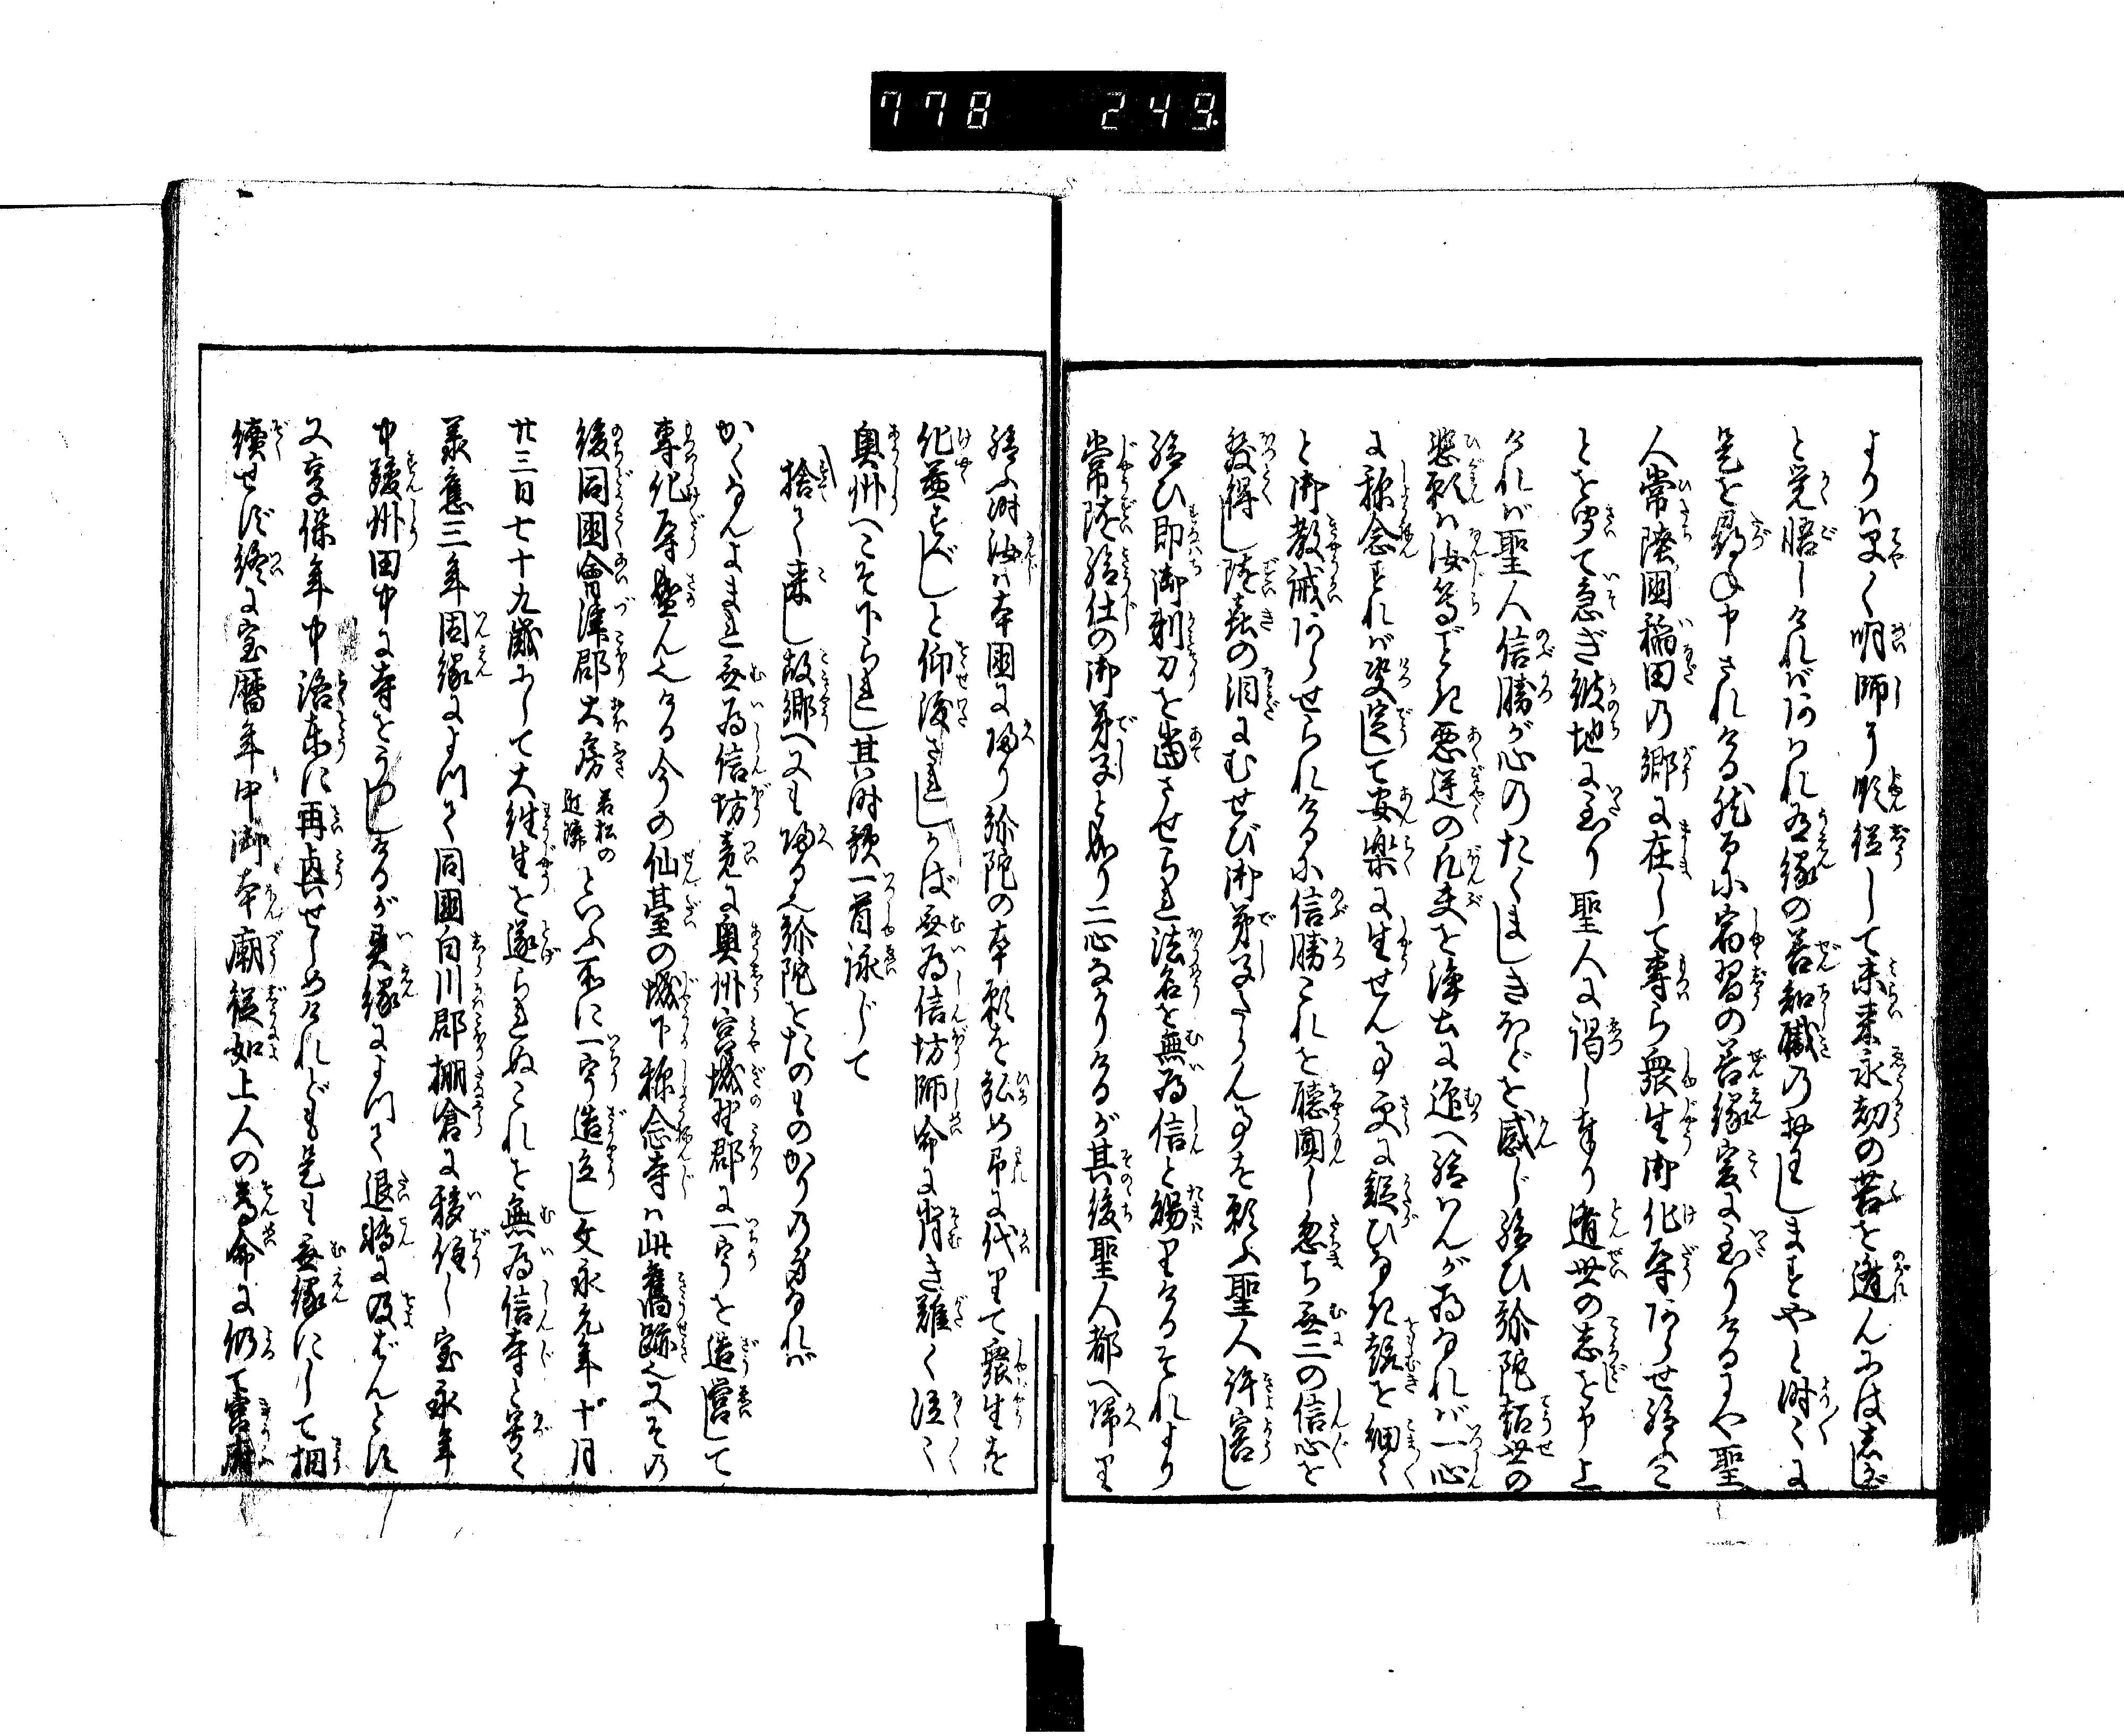 778 249
よりはやく明師に順従して未来永劫の苦を遁んにはしかじ
と覚悟しければあはれ有縁の善知識のおはしますやと時々に
是を尋ね申されける然るに宿習の善縁爰に至りけるにや聖
人常陸國稲田の郷に在して専ら衆生御化導あらせ給ふこ
とを聞て急ぎ彼地に至り聖人に謁し奉り遁世の志を申上
ければ聖人信勝が心のたくましきほどを感じ給ひ弥陀超世の
悲願は汝等ごとき悪逆の凡夫を浄土に迎へ給はんが為なれば一心
に称念すれば決定して安楽に生せん事更に疑ひなき趣を細々
と御教誡あらせられけるに信勝これを聴聞し忽ち無二の信心を
發得し随喜の涙にむせび御弟子たらん事を願ふ聖人許容し
給ひ即御剃刀を當させられ法名を無為信と賜りけるそれより
常随給仕の御弟子と成り二心なかりけるが其後聖人都へ帰り
給ふ時汝は本國に帰り弥陀の本願を弘め吊に代りて衆生を
化益すべしと仰渡されしかば無為信坊師命に背き難く泣々
奥州へこそ下られし其時歌一首詠じて
捨て来し故郷へにも帰る也弥陀をたのものかりの身なれば
かくなんよまれ無為信坊竟に奥州宮城野郡に一宇を造営して
専化導盛ん也ける今の仙臺の城下称念寺は此舊跡也又その
後同國會津郡大房若松の近隣といふ所に一宇造立し文永元年十月
廿三日七十九歳にして大往生を遂られぬこれを無為信寺と号く
承應三年因縁によつて同國白川郡棚倉に移住し宝永年
中駿州田中に寺をうつしけるが異縁によつて退轉に及ばんとす
又享保年中洛東に再興せしめけれども是も無縁にして相
續せず終に宝暦年中御本廟従如上人の尊命に仍て舊廟